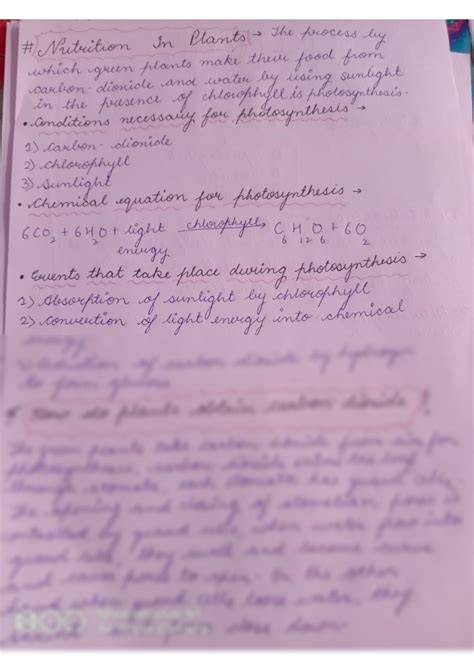 # Nutrition In Plants → The process by
which green plants make their food from
carbon-dioxide and water by using sunlight
in the presence of chlorophyll is photosynthesis.
• Conditions necessary for photosynthesis →
1) Carbon-dioxide
2) Chlorophyll
3) Sunlight
• Chemical equation for photosynthesis →
6CO2 + 6H2O + light energy chlorophyll→ C6H12O6 + 6O2
• Events that take place during photosynthesis →
1) Absorption of sunlight by chlorophyll
2) Convertion of light energy into chemical
energy
of carbon dioxide by hydrogen
to form glucose
How do plants obtain carbon dioxide?
The green plants take carbon dioxide from air for
photosynthesis. carbon dioxide enters the leaf
through stomata, each stomata has guard cells.
The opening and closing of stomatal pores is
controlled by guard cells, when water flows into
guard cells, they swell and become
and pore to open. On the other
guard cells lose water, they
close down.